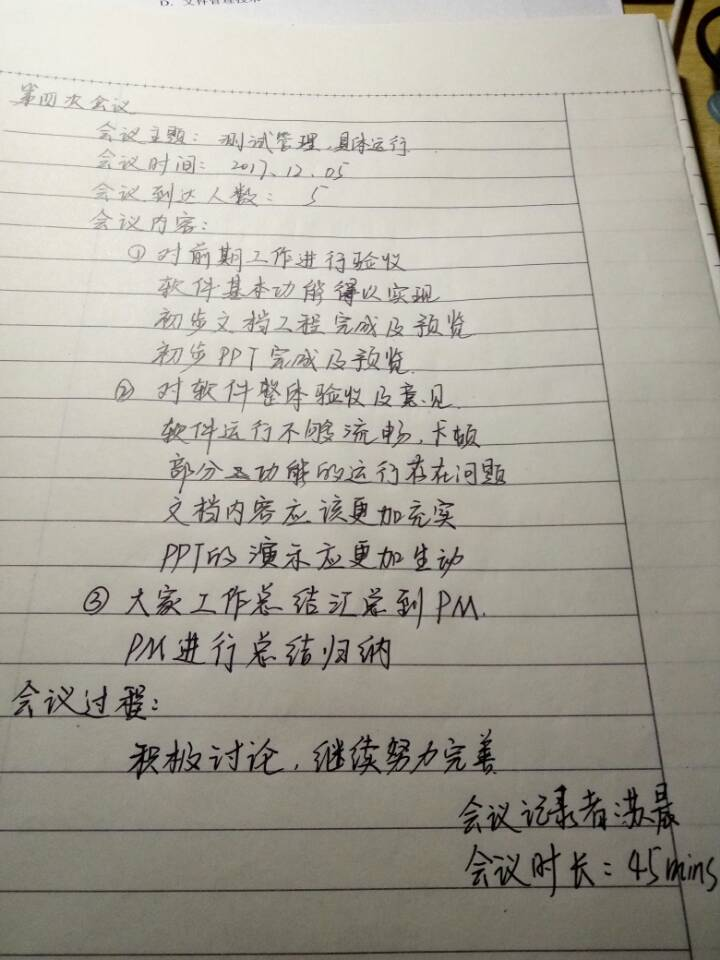 D. 文件管理技术
第四次会议
会议主题：测试管理，具体运行
会议时间：2017.12.05
会议到达人数：5
会议内容：
① 对前期工作进行验收
软件基本功能得以实现
初步文档工程完成及预览
初步PPT完成及预览
② 对软件整体验收及意见
软件运行不够流畅，卡顿
部分功能的运行存在问题
文档内容应该更加充实
PPT的演示应更加生动
③ 大家工作总结汇总到PM.
PM进行总结归纳
会议过程：
积极讨论，继续努力完善
会议记录者：苏晨
会议时长：45mins